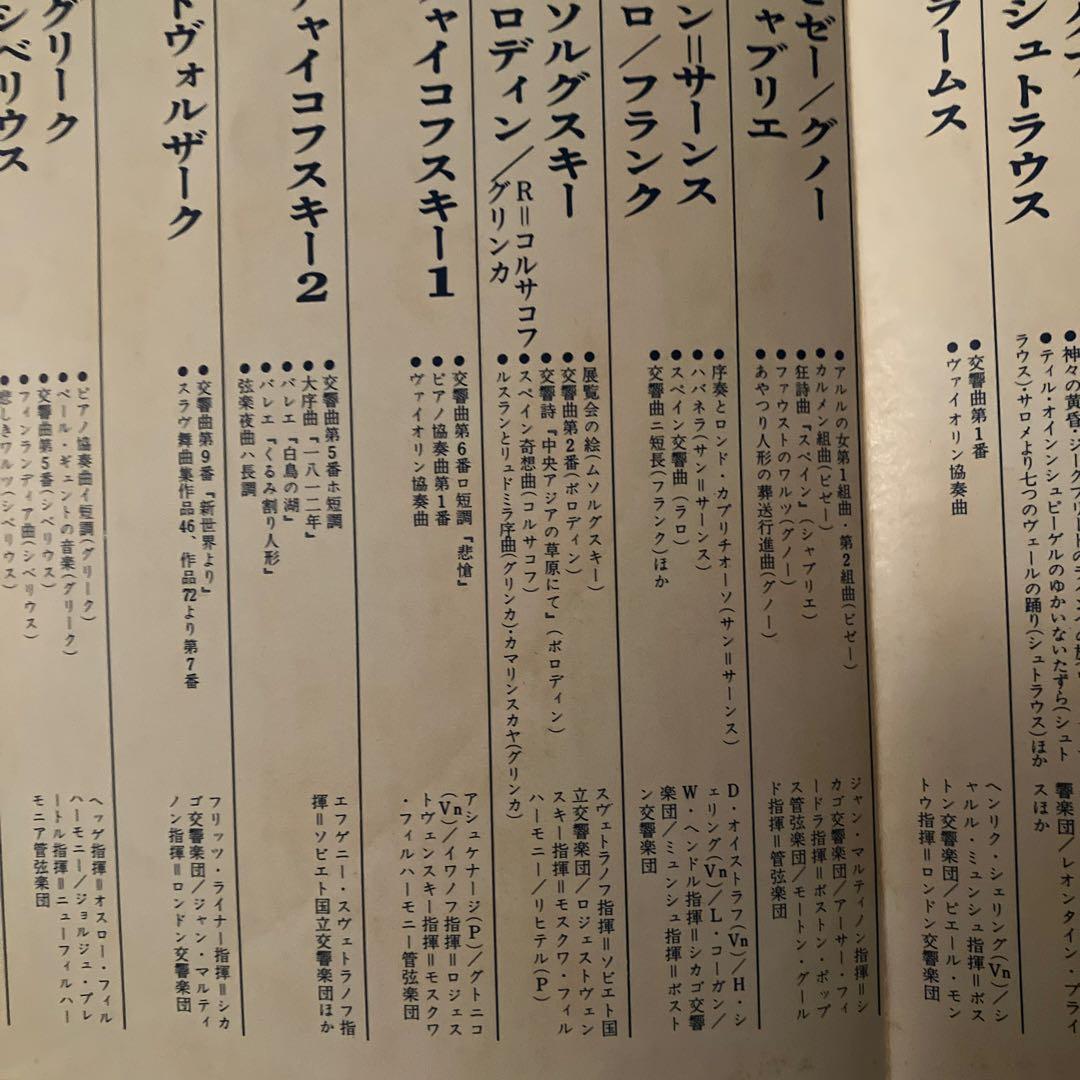 シュトラウス
神々の黄昏・ジークフリートのラインへの旅
●ティル・オインシュピーゲルのゆかいないたずら(シュト
ラウス)・サロメより七つのヴェールの踊り(シュトラウス)ほか
響楽団/レオンタイン・プライ
スほか
ラームス
●交響曲第1番
●ヴァイオリン協奏曲
ヘンリク・シェリング(Vn)/シ
ャルル・ミュンシュ指揮=ボス
トン交響楽団/ピエール・モン
トウ指揮=ロンドン交響楽団
ゼー/グノー
ャブリエ
●アルルの女第1組曲・第2組曲(ビゼー)
●カルメン組曲(ビゼー)
●狂詩曲『スペイン』(シャブリエ)
●ファウストのワルツ(グノー)
●あやつり人形の葬送行進曲(グノー)
ジャン・マルティノン指揮=シ
カゴ交響楽団/アーサー・フィ
ードラ指揮=ボストン・ポップ
ス管弦楽団/モートン・グール
ド指揮=管弦楽団
ン=サーンス
ロ/フランク
●序奏とロンド・カプリチオーソ(サン=サーンス)
●ハバネラ(サン=サーンス)
●スペイン交響曲(ラロ)
●交響曲ニ短長(フランク)ほか
D・オイストラフ(Vn)/H・シ
ェリング(Vn)/L・コーガン/
W・ヘンドル指揮=シカゴ交響
楽団/ミュンシュ指揮=ボスト
ン交響楽団
ソルグスキー
ロディン/R=コルサコフ
グリンカ
●展覧会の絵(ムソルグスキー)
●交響曲第2番(ボロディン)
●交響詩『中央アジアの草原にて』(ボロディン)
●スペイン奇想曲(コルサコフ)
●ルスランとリュドミラ序曲(グリンカ)・カマリンスカヤ(グリンカ)
スヴェトラノフ指揮=ソビエト国
立交響楽団/ロジェストヴェン
スキー指揮=モスクワ・フィル
ハーモニー/リヒテル(P)
ャイコフスキー1
●交響曲第6番ロ短調『悲愴』
●ピアノ協奏曲第1番
●ヴァイオリン協奏曲
アシュケナージ(P)/グトニコ
(Vn)/イワノフ指揮=ロジェス
トヴェンスキー指揮=モスクワ
・フィルハーモニー管弦楽団
ャイコフスキー2
●交響曲第5番ホ短調
●大序曲『一八一二年』
●バレエ『白鳥の湖』
●バレエ『くるみ割り人形』
●弦楽夜曲ハ長調
エフゲニー・スヴェトラノフ指
揮=ソビエト国立交響楽団ほか
ドヴォルザーク
●交響曲第9番『新世界より』
●スラヴ舞曲集作品46、作品72より第7番
フリッツ・ライナー指揮=シカ
ゴ交響楽団/ジャン・マルティ
ノン指揮=ロンドン交響楽団
グリーク
シベリウス
●ピアノ協奏曲イ短調(グリーク)
●ペール・ギュントの音楽(グリーク)
●交響曲第5番(シベリウス)
●フィンランディア曲(シベリウス)
●悲しきワルツ(シベリウス)
ヘッゲ指揮=オスロー・フィル
ハーモニー/ジョルジュ・プレ
ートル指揮=ニューフィルハー
モニア管弦楽団